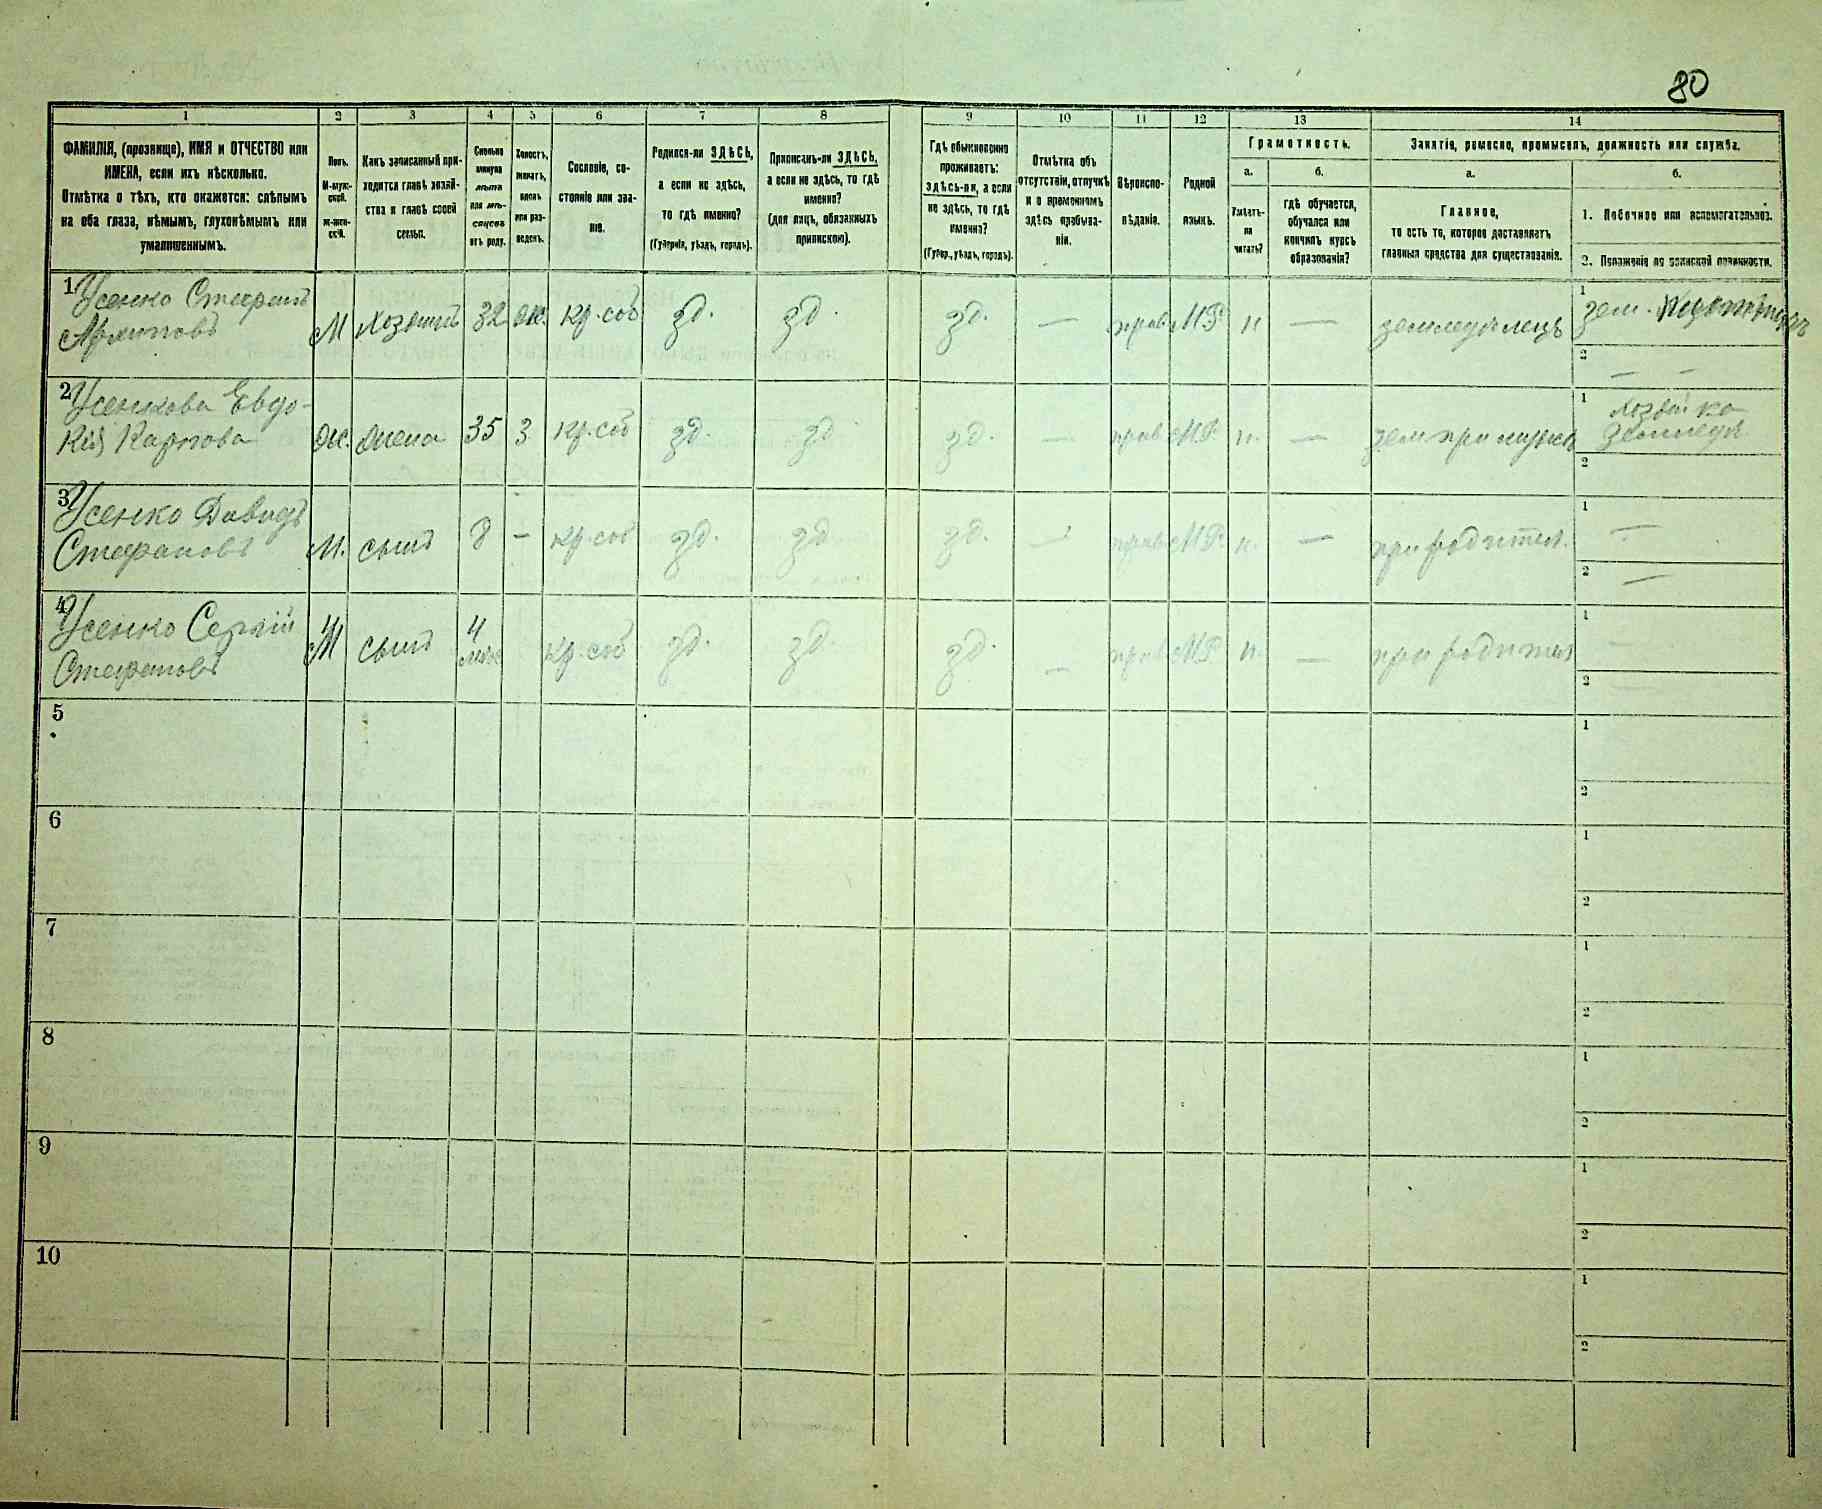 80
1 2 3 4 5 6 7 8 9 10 11 12 13 14
ФАМИЛІЯ, (прозвище), ИМЯ и ОТЧЕСТВО или
ИМЕНА, если ихъ нѣсколько.
Отмѣтка о тѣхъ, кто окажется: слѣпымъ
на оба глаза, нѣмымъ, глухонѣмымъ или
умалишеннымъ.
Полъ.
М-муж-
ской.
ж-жен-
скій.
Какъ записанный при-
ходится главѣ хозяй-
ства и главѣ своей
семьи.
Сколько
минуло
лѣтъ
или мѣ-
сяцевъ
отъ роду.
Холостъ,
женатъ,
вдовъ
или раз-
веденъ.
Сословіе, со-
стояніе или зва-
ніе.
Родился-ли ЗДѢСЬ,
а если не здѣсь,
то гдѣ именно?
(Губернія, уѣздъ, городъ).
Приписанъ-ли ЗДѢСЬ,
а если не здѣсь, то гдѣ
именно?
(для лицъ, обязанныхъ
припискою).
Гдѣ обыкновенно
проживаетъ:
здѣсь-ли, а если
не здѣсь, то гдѣ
именно?
(Губер., уѣздъ, городъ).
Отмѣтка объ
отсутствіи, отлучкѣ
и о временномъ
здѣсь пребыва-
ніи.
Вѣроиспо-
вѣданіе.
Родной
языкъ.
Грамотность.
а.
Умѣетъ-
ли
читать?
б.
гдѣ обучается,
обучался или
кончилъ курсъ
образованія?
Занятіе, ремесло, промыселъ, должность или служба.
а.
Главное,
то есть то, которое доставляетъ
главныя средства для существованія.
б.
1. Побочное или вспомогательное.
2. Положеніе по воинской повинности.
1 Усенко Стефанъ
Архиповъ М хозяинъ 32 ж. кр. соб зд. зд. зд. — прав М.Р. н — земледѣлецъ 1 зем.
2 — —
2 Усенкова Евдо-
кія Карпова ж. жена 35 з кр. соб зд. зд зд. — прав М.Р. н. — зем при мужѣ 1 Хозяйка
земледѣл
2
3 Усенко Давидъ
Стефановъ М. сынъ 8 - кр. соб зд. зд зд. — прав М.Р. н. — при родител. 1 —
2 —
4 Усенко Сергій
Стефановъ М сынъ 4
мѣс кр. соб зд. зд. зд. — прав М.Р. н. — при родител 1
2
5 1
2
6 1
2
7 1
2
8 1
2
9 1
2
10 1
2